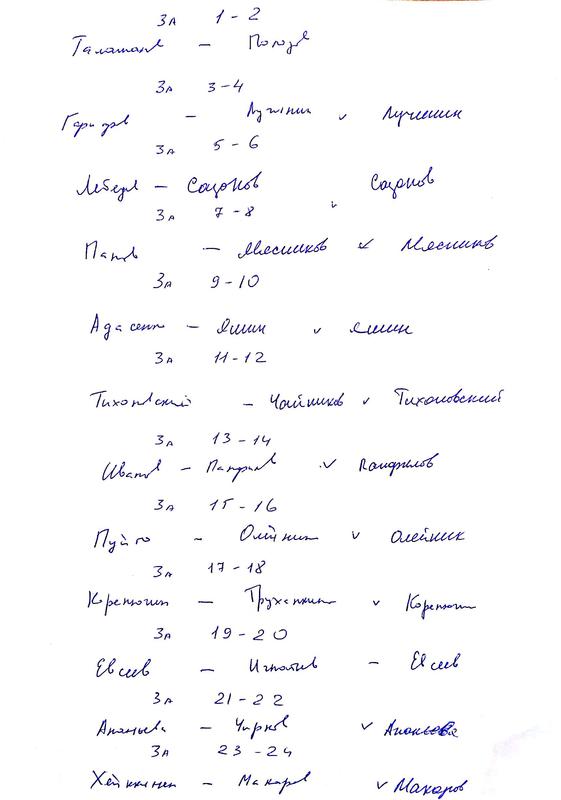 За 1-2
— Пологов
За 3-4
— Лучинин v Лучинин
За 5-6
Лебедь — Сазонов Сазонов
За 7-8 v
Панов — Мясников v Мясников
За 9-10
Адасенко — Яшин v Яшин
За 11-12
Тихоновский — Чайников v Тихоновский
За 13-14
Иванов — Панфилов v Панфилов
За 15-16
Пуйто — Олейник v Олейник
За 17-18
Корепогин — v Корепогин
За 19-20
Евсеев — Игнатьев — Евсеев
За 21-22
Ананьева — Чирков v Ананьева
За 23-24
Хейккинен — Макаров v Макаров